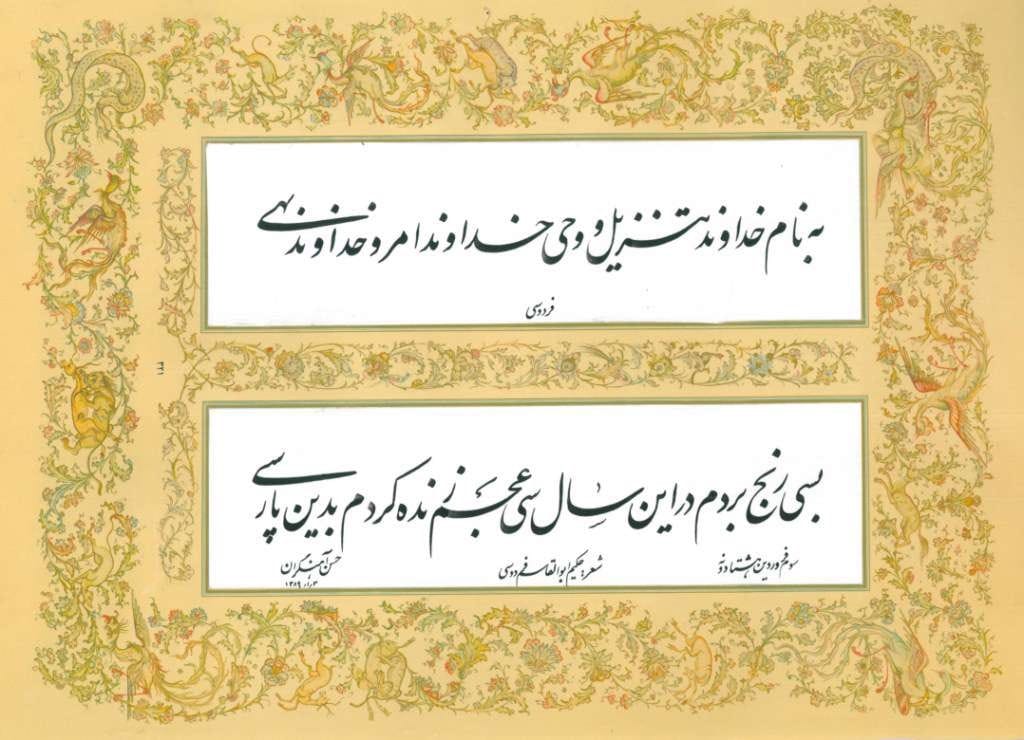 به نام خداوند تنزیل و وحی خداوند امر و خداوند نهی
فردوسی
بسی رنج بردم در این سال سی عجم زنده کردم بدین پارسی
سوم فروردین هشتاد و نه شعر: حکیم ابوالقاسم فردوسی حسن آهنگران
۱۳۸۹